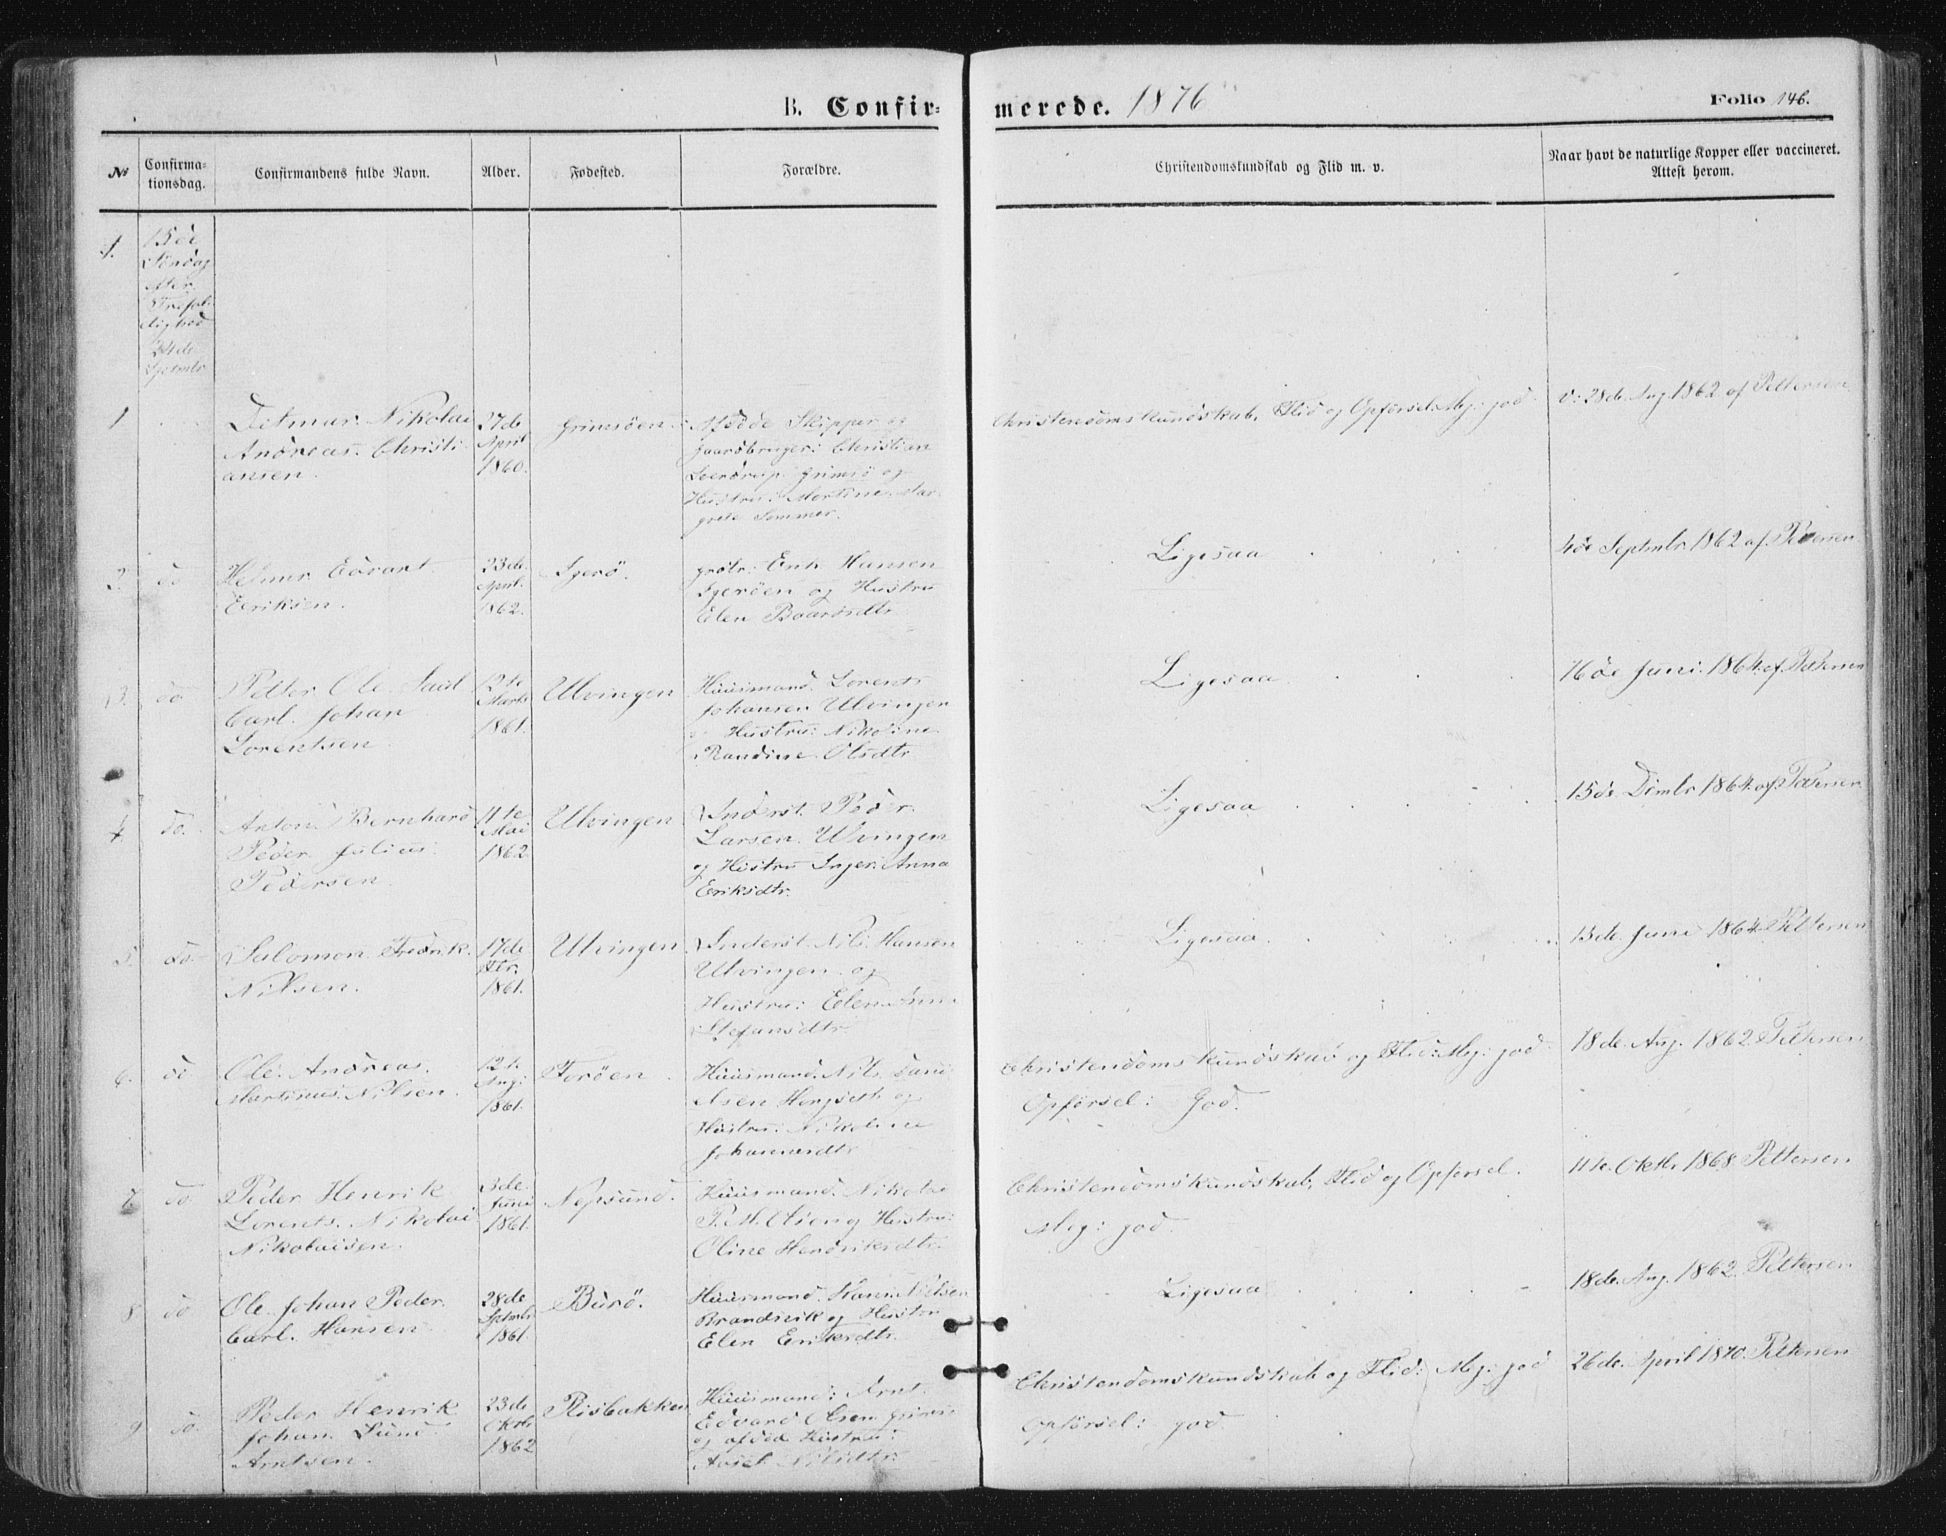 B. Confir-
merede. 1876
Folio 146.
№
Confirma-
tionsdag.
Confirmandens fulde Navn.
Alder.
Fødested.
Forældre.
Christendomskundskab og Flid m. v.
Naar havt de naturlige Kopper eller vaccineret.
Attest herom.
1.
15de
Søndag
efter
Trefol-
dighed
24de
Septmbr
1
Detmar Nikolai
Andreas Christi-
ansen.
27de
April
1860.
Grimsöen.
Afdöde Skipper og
Gaardbruger: Christian
Grimsö og
Hustru: Martine Mar-
grete Sommer.
Christendomskundskab, Flid og Opförsel: Meg: god.
v: 28de Aug 1862 af Pettersen
2.
do
Helmer Edvart
Eriksen.
23de
April
1862.
Igerö.
grdbr: Erik Hansen
Igeröen og Hustru
Elen Baardsdtr
Ligesaa
4de Septmbr 1862 af Petersen
3.
do
Petter Ole
Carl Johan
Lorentsen
12te
Marts
1861.
Ulvingen
Huusmand Lorents
Johansen Ulvingen
Hustru: Nikoline
Randine Olsdtr
Ligesaa
16de Juni 1864 af Petersen
4.
do.
Anton Bernhard
Peder Julius
Pedersen
11te
Mai
1862
Ulvingen
Inderst Peder
Larsen Ulvingen
og Hustru Inger Anna
Eriksdtr.
Ligesaa
15de Dcmbr 1864 af Petersen
5.
do.
Salomon Fredrik
Nilsen.
17de
Fbr.
1861.
Ulvingen
Inderst Nils Hansen
Ulvingen og
Hustru: Elen Anna
Stefansdtr
Ligesaa.
13de Juni 1864 Pettersen
6.
do
Ole Andreas
Martinus Nilsen.
12te
Aug:
1861.
Foröen
Huusmand Nils
og
Hustru: Nikoline
Johannesdtr
Christendomskundskab og Flid: Meg: god
Opförsel: God.
18de Aug. 1862 Pettersen
7.
do.
Peder Henrik
Lorents Nikolai
Nikolaisen.
3de
Juni
1861.
Huusmand Nikolai
P. M. Olsen og Hustru:
Oline Hendriksdtr.
Christendomskundskab, Flid og Opförsel.
Meg: god.
11te Oktbr 1868 Pettersen
8
do
Ole Johan Peder
Carl Hansen
28de
Sptmbr
1861
Burö.
Huusmand Hans Nilsen
Brandsvik og Hustru
Elen Eriksdtr.
Ligesaa
18de Aug. 1862 Pettersen
9
do.
Peder Henrik
Johan Lund
Arntsen.
23de
Oktbr
1862
Risbakken
Huusmand: Arnt
Edvard Olsen
og afdöd Hustru:
Nilsdtr
Christendomskundskab og Flid: Meg: god
Opförsel: god
26de April 1870. Pettersen